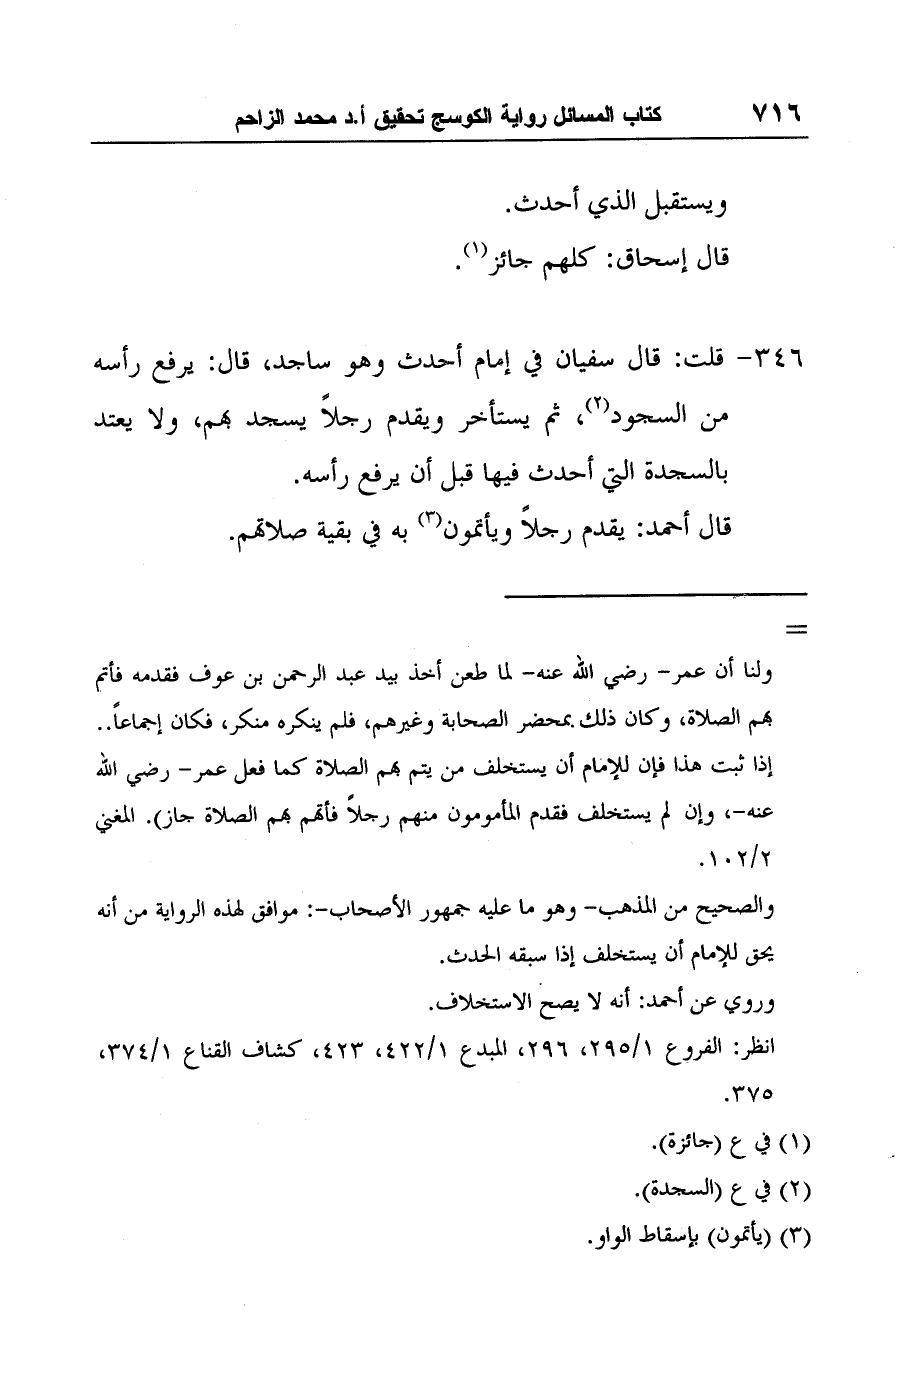 ٧١٦ كتاب المسائل رواية الكوسج تحقيق أ.د محمد الزاحم
ويستقبل الذي أحدث.
قال إسحاق: كلهم جائز(١).
٣٤٦- قلت: قال سفيان في إمام أحدث وهو ساجد، قال: يرفع رأسه
من السجود(٢)، ثم يستأخر ويقدم رجلاً يسجد بهم، ولا يعتد
بالسجدة التي أحدث فيها قبل أن يرفع رأسه.
قال أحمد: يقدم رجلاً ويأتمون(٣) به في بقية صلاتهم.
=
ولنا أن عمر- رضي الله عنه- لما طعن أخذ بيد عبد الرحمن بن عوف فقدمه فأتم
بهم الصلاة، وكان ذلك بمحضر الصحابة وغيرهم، فلم ينكره منكر، فكان إجماعاً..
إذا ثبت هذا فإن للإمام أن يستخلف من يتم بهم الصلاة كما فعل عمر- رضي الله
عنه-، وإن لم يستخلف فقدم المأمومون منهم رجلاً فأتهم بهم الصلاة جاز). المغني
١٠٢/٢.
والصحيح من المذهب- وهو ما عليه جمهور الأصحاب-: موافق لهذه الرواية من أنه
يحق للإمام أن يستخلف إذا سبقه الحدث.
وروي عن أحمد: أنه لا يصح الاستخلاف.
انظر: الفروع ٢٩٥/١، ٢٩٦، المبدع ٤٢٢/١، ٤٢٣، كشاف القناع ٣٧٤/١،
٣٧٥.
(١) في ع (جائزة).
(٢) في ع (السجدة).
(٣) (يأتمون) بإسقاط الواو.